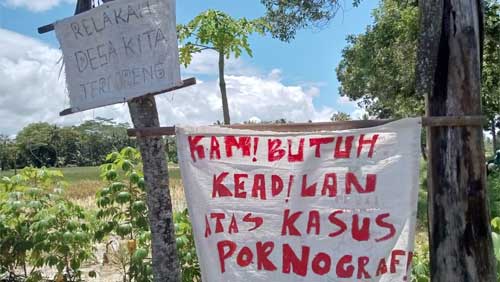 RELAKAH
DESA KITA
TERCORENG
KAM! BUTUH
KEAD!LAN
ATAS KASUS
PORNOGRAF!